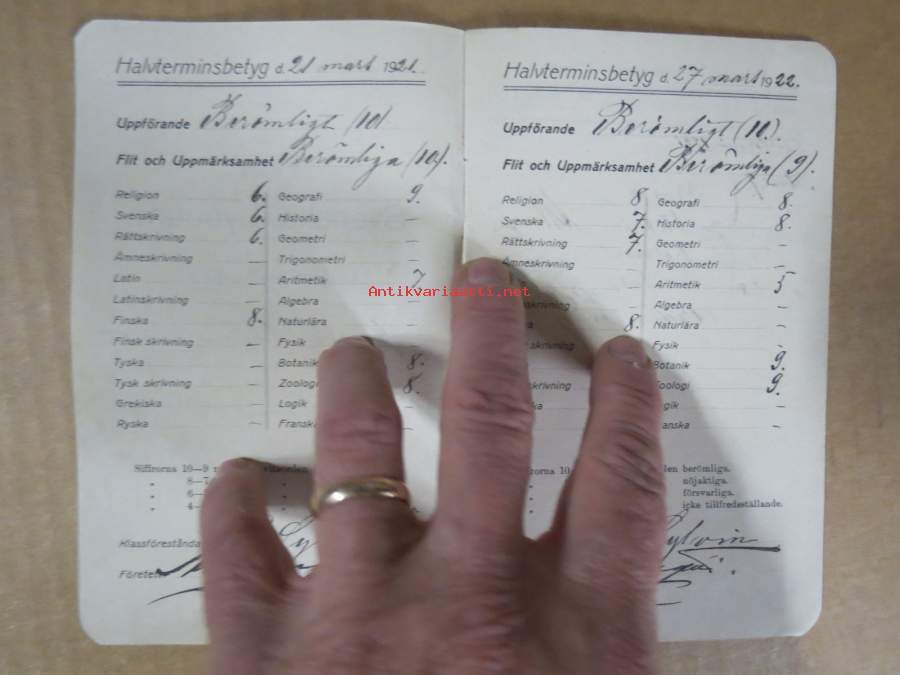 Halvterminsbetyg d. 21 mart 1921.
Uppförande Berömligt (10)
Flit och Uppmärksamhet Berömliga (10).
Religion 6. Geografi 9.
Svenska 6. Historia —
Rättskrivning 6. Geometri —
Ämneskrivning — Trigonometri —
Latin — Aritmetik 7
Latinskrivning — Algebra —
Finska 8. Naturlära —
Finsk skrivning — Fysik
Tyska — Botanik 8.
Tysk skrivning — Zoologi 8.
Grekiska — Logik —
Ryska — Franska —
Siffrorna 10—9
" 8—7 "
" 6— "
" 4— "
Klassförestånda
Företett
Halvterminsbetyg d. 27 mart 1922.
Uppförande Berömligt (10).
Flit och Uppmärksamhet Berömliga (9).
Religion 8 Geografi 8.
Svenska 7. Historia 8.
Rättskrivning 7. Geometri —
Ämneskrivning — Trigonometri —
Aritmetik 5
skrivning — Algebra —
8. Naturlära —
skrivning Fysik -
Botanik 9.
skrivning oologi 9.
ka gik —
anska —
rorna 10 den berömliga.
" nöjaktiga.
" försvarliga.
icke tillfredeställande.
Sylvin
Antikvariaatti.net